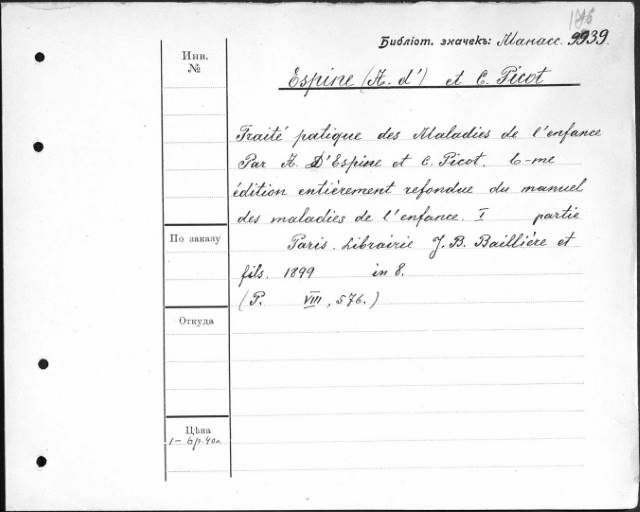 176
Библіот. значекъ: Манасс. 9939.
Инв.
№
Espine (A. d') et C. Picot
Traité patique des Maladies de l'enfance
Par A. D'Espine et C. Picot. 6-me
édition entièrement refondue du manuel
des maladies de l'enfance. I partie
По заказу
Paris. Librairie J. B. Baillière et
fils. 1899 in 8.
(P. VIII, 576.)
Откуда
Цѣна
1 - 6 р. 40 к